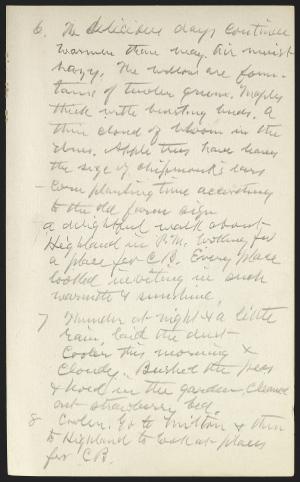 6. The delicious days continue
warmer than May. Air moist
hazy. The willows are foun-
tains of tender green. Maples
thick with bursting buds. A
thin cloud of bloom in the
elms. Apple trees have leaves
the size of chipmunk's ears
- Corn planting time according
to the old farm sign
a delightful walk about
Highland in P.M. looking for
a place for C.B. Every place
looked inviting in such
warmth & sunshine.
7 Thunder at night & a little
rain, laid the dust
Cooler this morning &
cloudy. Bushed the peas
& hoed in the garden. Cleaned
out strawberry bed.
8 Cooler. Go to Milton & then
to Highland to look at places
for C.B.